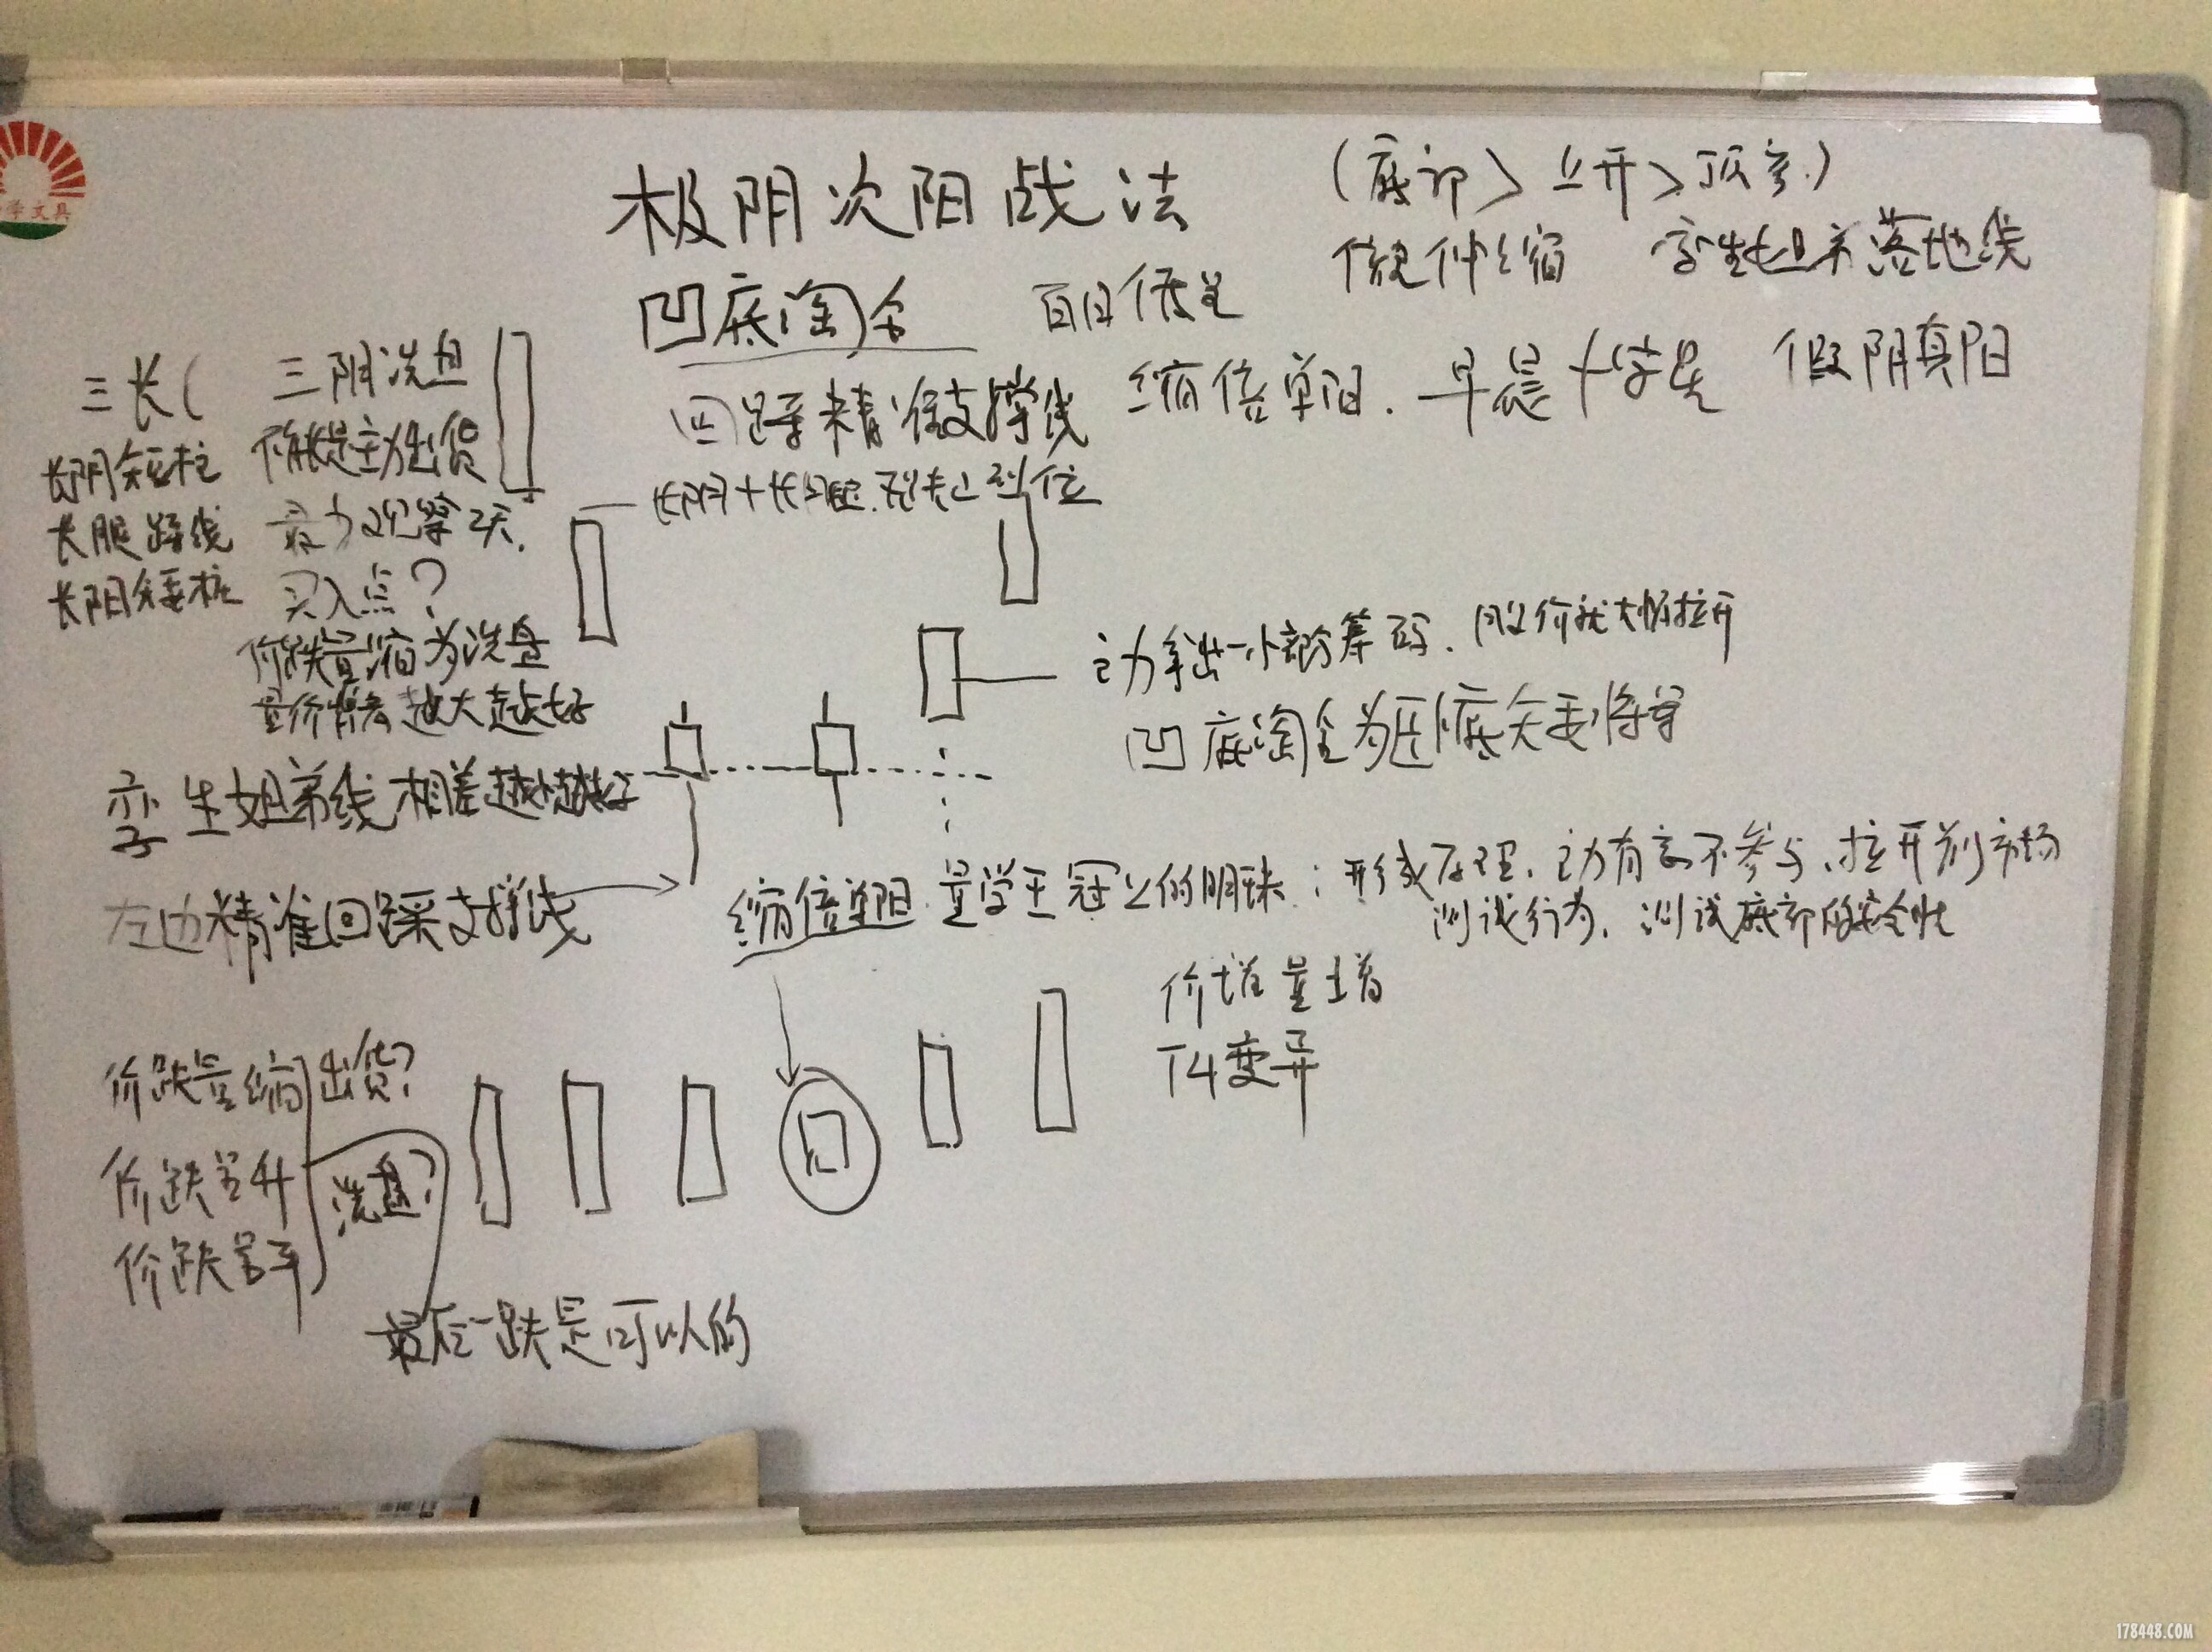 极阴次阳战法
(底部>上升>顶部)
凹底淘金 百日低量
倍伸缩 孪生姐弟落地线
回踩精准支撑线 缩倍单阳. 早晨十字星 假阴真阳
长阴+长腿
到位
三长(
长阴短柱
长腿踩线
长阳矮柱
三阴洗盘
确认是主力出货
最少观察2天.
买入点?
价跌量缩为洗盘
量价背离越大越好
主力拿出一小部分筹码. 股价就大幅拉升
凹底淘金为
孪生姐弟线相差越小越好
左边精准回踩支撑线
缩倍单阳 量学王冠上的明珠: 形成原理. 主力有意不参与. 拉升前市场
测试行为. 测试底部的安全性
价增量增
T4变异
价跌量缩 出货?
价跌量升 洗盘?
价跌量平
最后一跌是可以的
文具
178448.COM